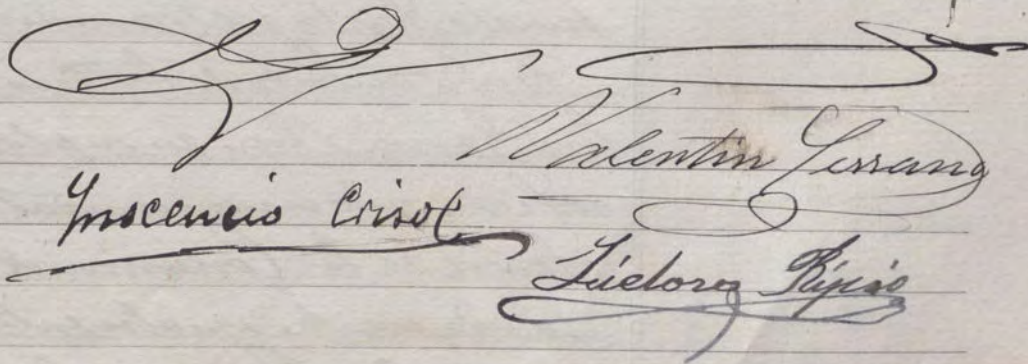 Valentin Serrano
Inocencio Crisol
Isidoro